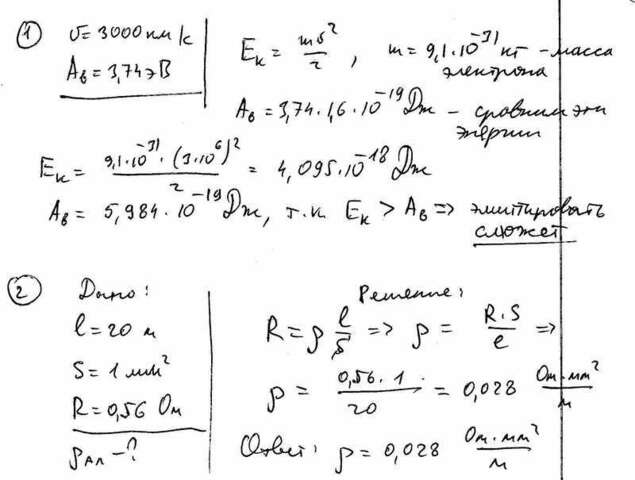 ① υ = 3000 км/с
Aв = 3,74 эВ
Eк = mυ²/2, m = 9,1·10⁻³¹ кг - масса
электрона
Aв = 3,74·1,6·10⁻¹⁹ Дж – сравним эти
энергии
Eк = 9,1·10⁻³¹·(3·10⁶)²/2 = 4,095·10⁻¹⁸ Дж
Aв = 5,984·10⁻¹⁹ Дж, т.к. Eк > Aв => эмитировать
сможет
② Дано:
l = 20 м
S = 1 мм²
R = 0,56 Ом
ρАл - ?
Решение:
R = ρ l/S => ρ = R·S/l =>
ρ = 0,56·1/20 = 0,028 Ом·мм²/м
Ответ: ρ = 0,028 Ом·мм²/м